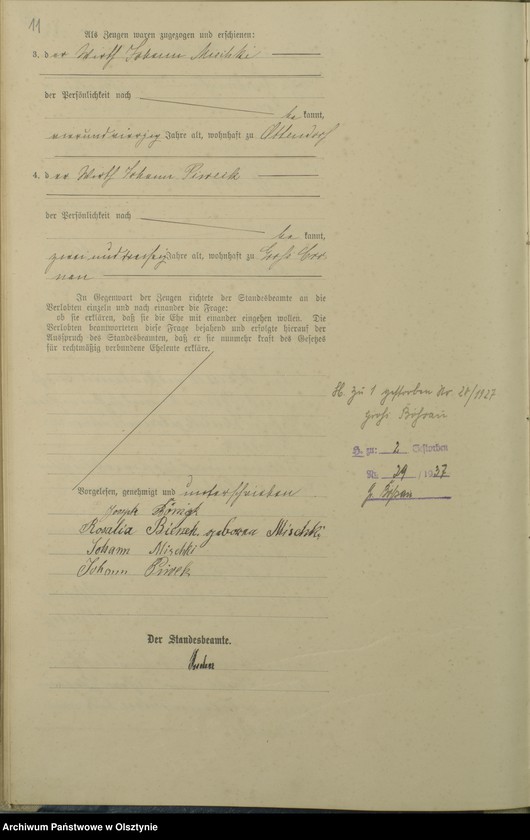 11
Als Zeugen waren zugezogen und erschienen:
3. der Wirth Johann Mischki
der Persönlichkeit nach
bekannt,
vierundvierzig Jahre alt, wohnhaft zu Ottendorf
4. der Wirth Johann Piwek
der Persönlichkeit nach
bekannt,
zweiunddreißig Jahre alt, wohnhaft zu Groß
In Gegenwart der Zeugen richtete der Standesbeamte an die
Verlobten einzeln und nach einander die Frage:
ob sie erklären, daß sie die Ehe mit einander eingehen wollen. Die
Verlobten beantworteten diese Frage bejahend und erfolgte hierauf der
Ausspruch des Standesbeamten, daß er sie nunmehr kraft des Gesetzes
für rechtmäßig verbundene Eheleute erkläre.
H. zu 1 gestorben Nr. 28/1927
H. zu: 2 Gestorben
Nr. 29 /1937
Vorgelesen, genehmigt und unterschrieben
Joseph
Rosalia Bienek geboren Mischki
Johann Mischki
Johann Piwek
Der Standesbeamte.
Archiwum Państwowe w Olsztynie